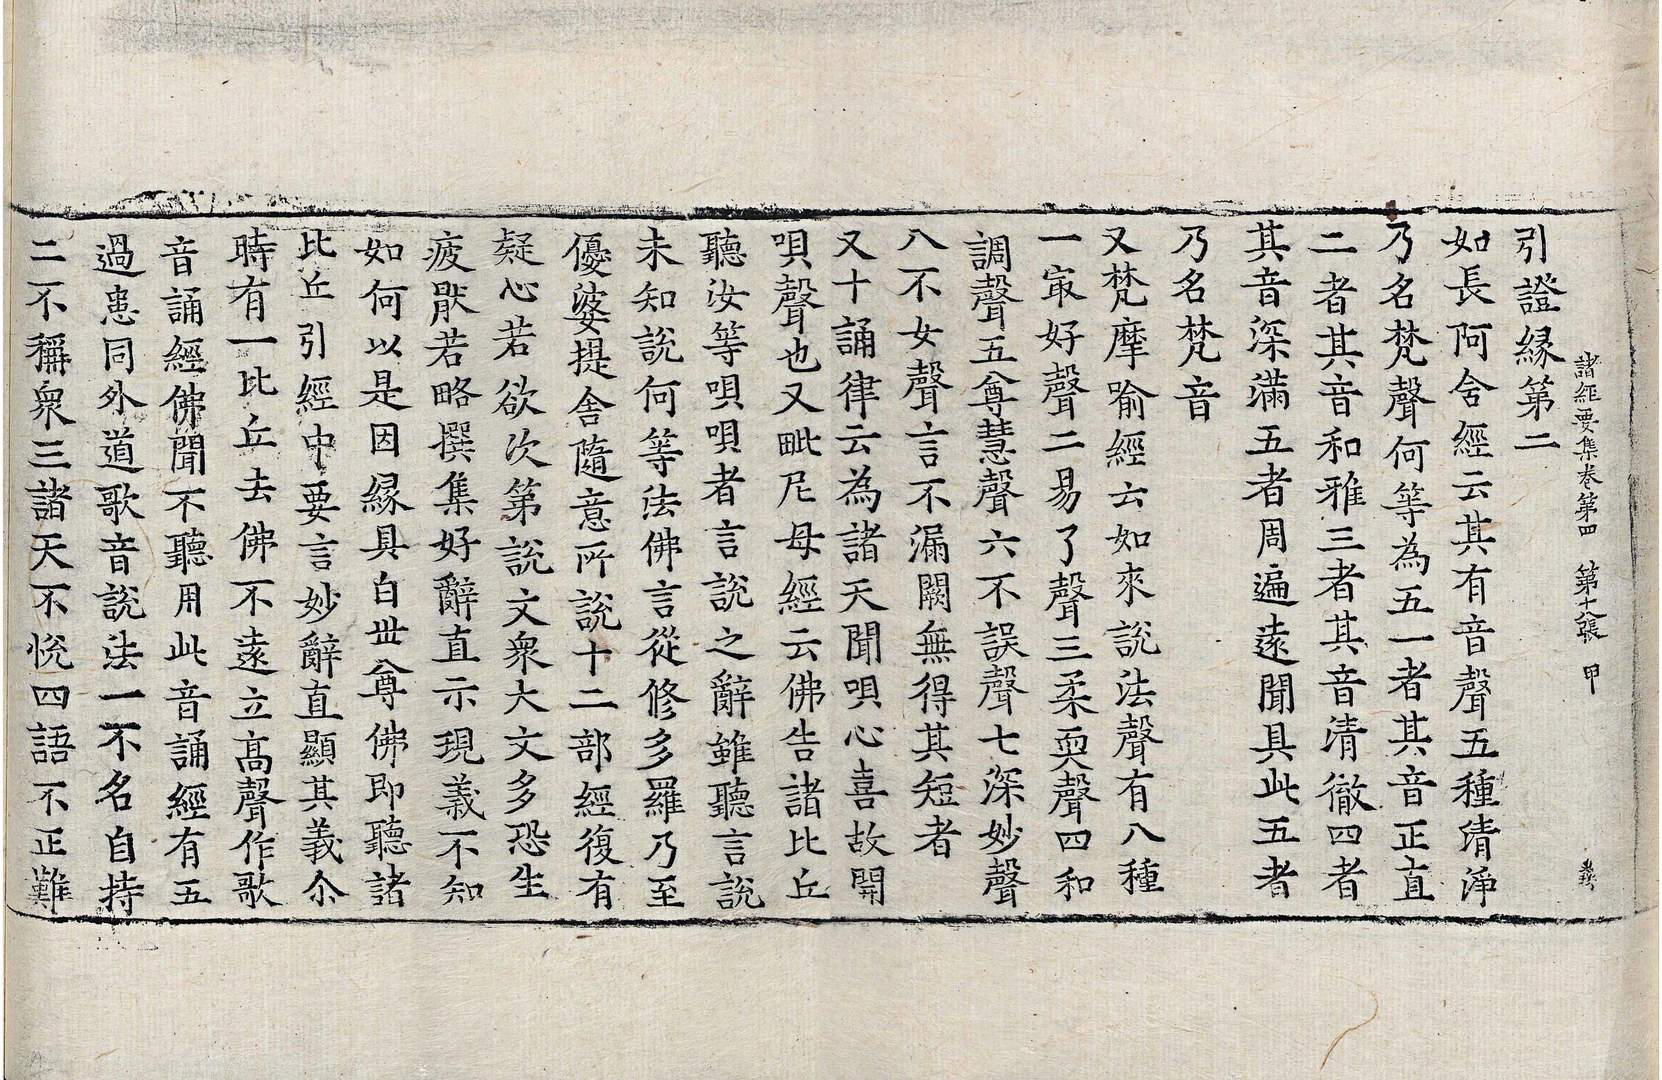 諸經要集卷第四　第十八張　甲
引證緣第二
如長阿含經云其有音聲五種清淨
乃名梵聲何等為五一者其音正直
二者其音和雅三者其音清徹四者
其音深滿五者周遍遠聞具此五者
乃名梵音
又梵摩喻經云如來說法聲有八種
一㝡好聲二易了聲三柔耎聲四和
調聲五尊慧聲六不誤聲七深妙聲
八不女聲言不漏闕無得其短者
又十誦律云為諸天聞唄心喜故開
唄聲也又毗尼母經云佛告諸比丘
聽汝等唄唄者言說之辭雖聽言說
未知說何等法佛言從修多羅乃至
優婆提舍隨意所說十二部經復有
疑心若欲次第說文眾大文多恐生
疲厭若略撰集好辭直示現義不知
如何以是因緣具白世尊佛即聽諸
比丘引經中要言妙辭直顯其義尒
時有一比丘去佛不遠立高聲作歌
音誦經佛聞不聽用此音誦經有五
過患同外道歌音說法一不名自持
二不稱眾三諸天不悅四語不正難